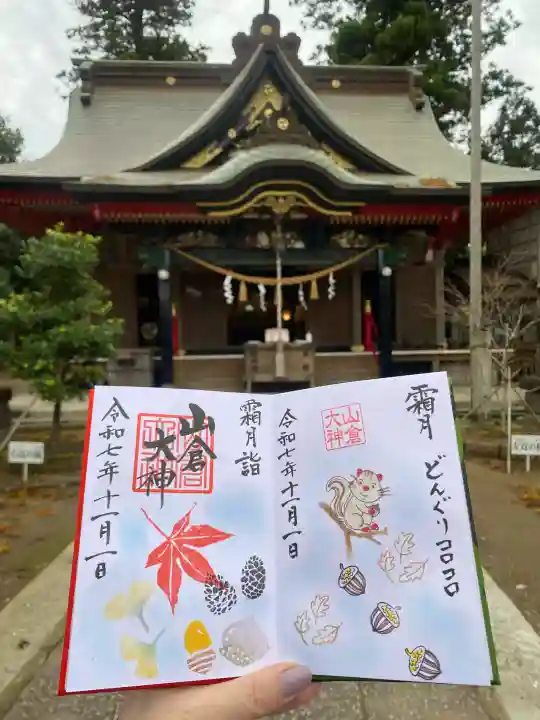 霜月 どんぐりコロコロ
山倉
大神
令和七年十一月一日
霜月詣
山倉
大神
令和七年十一月一日